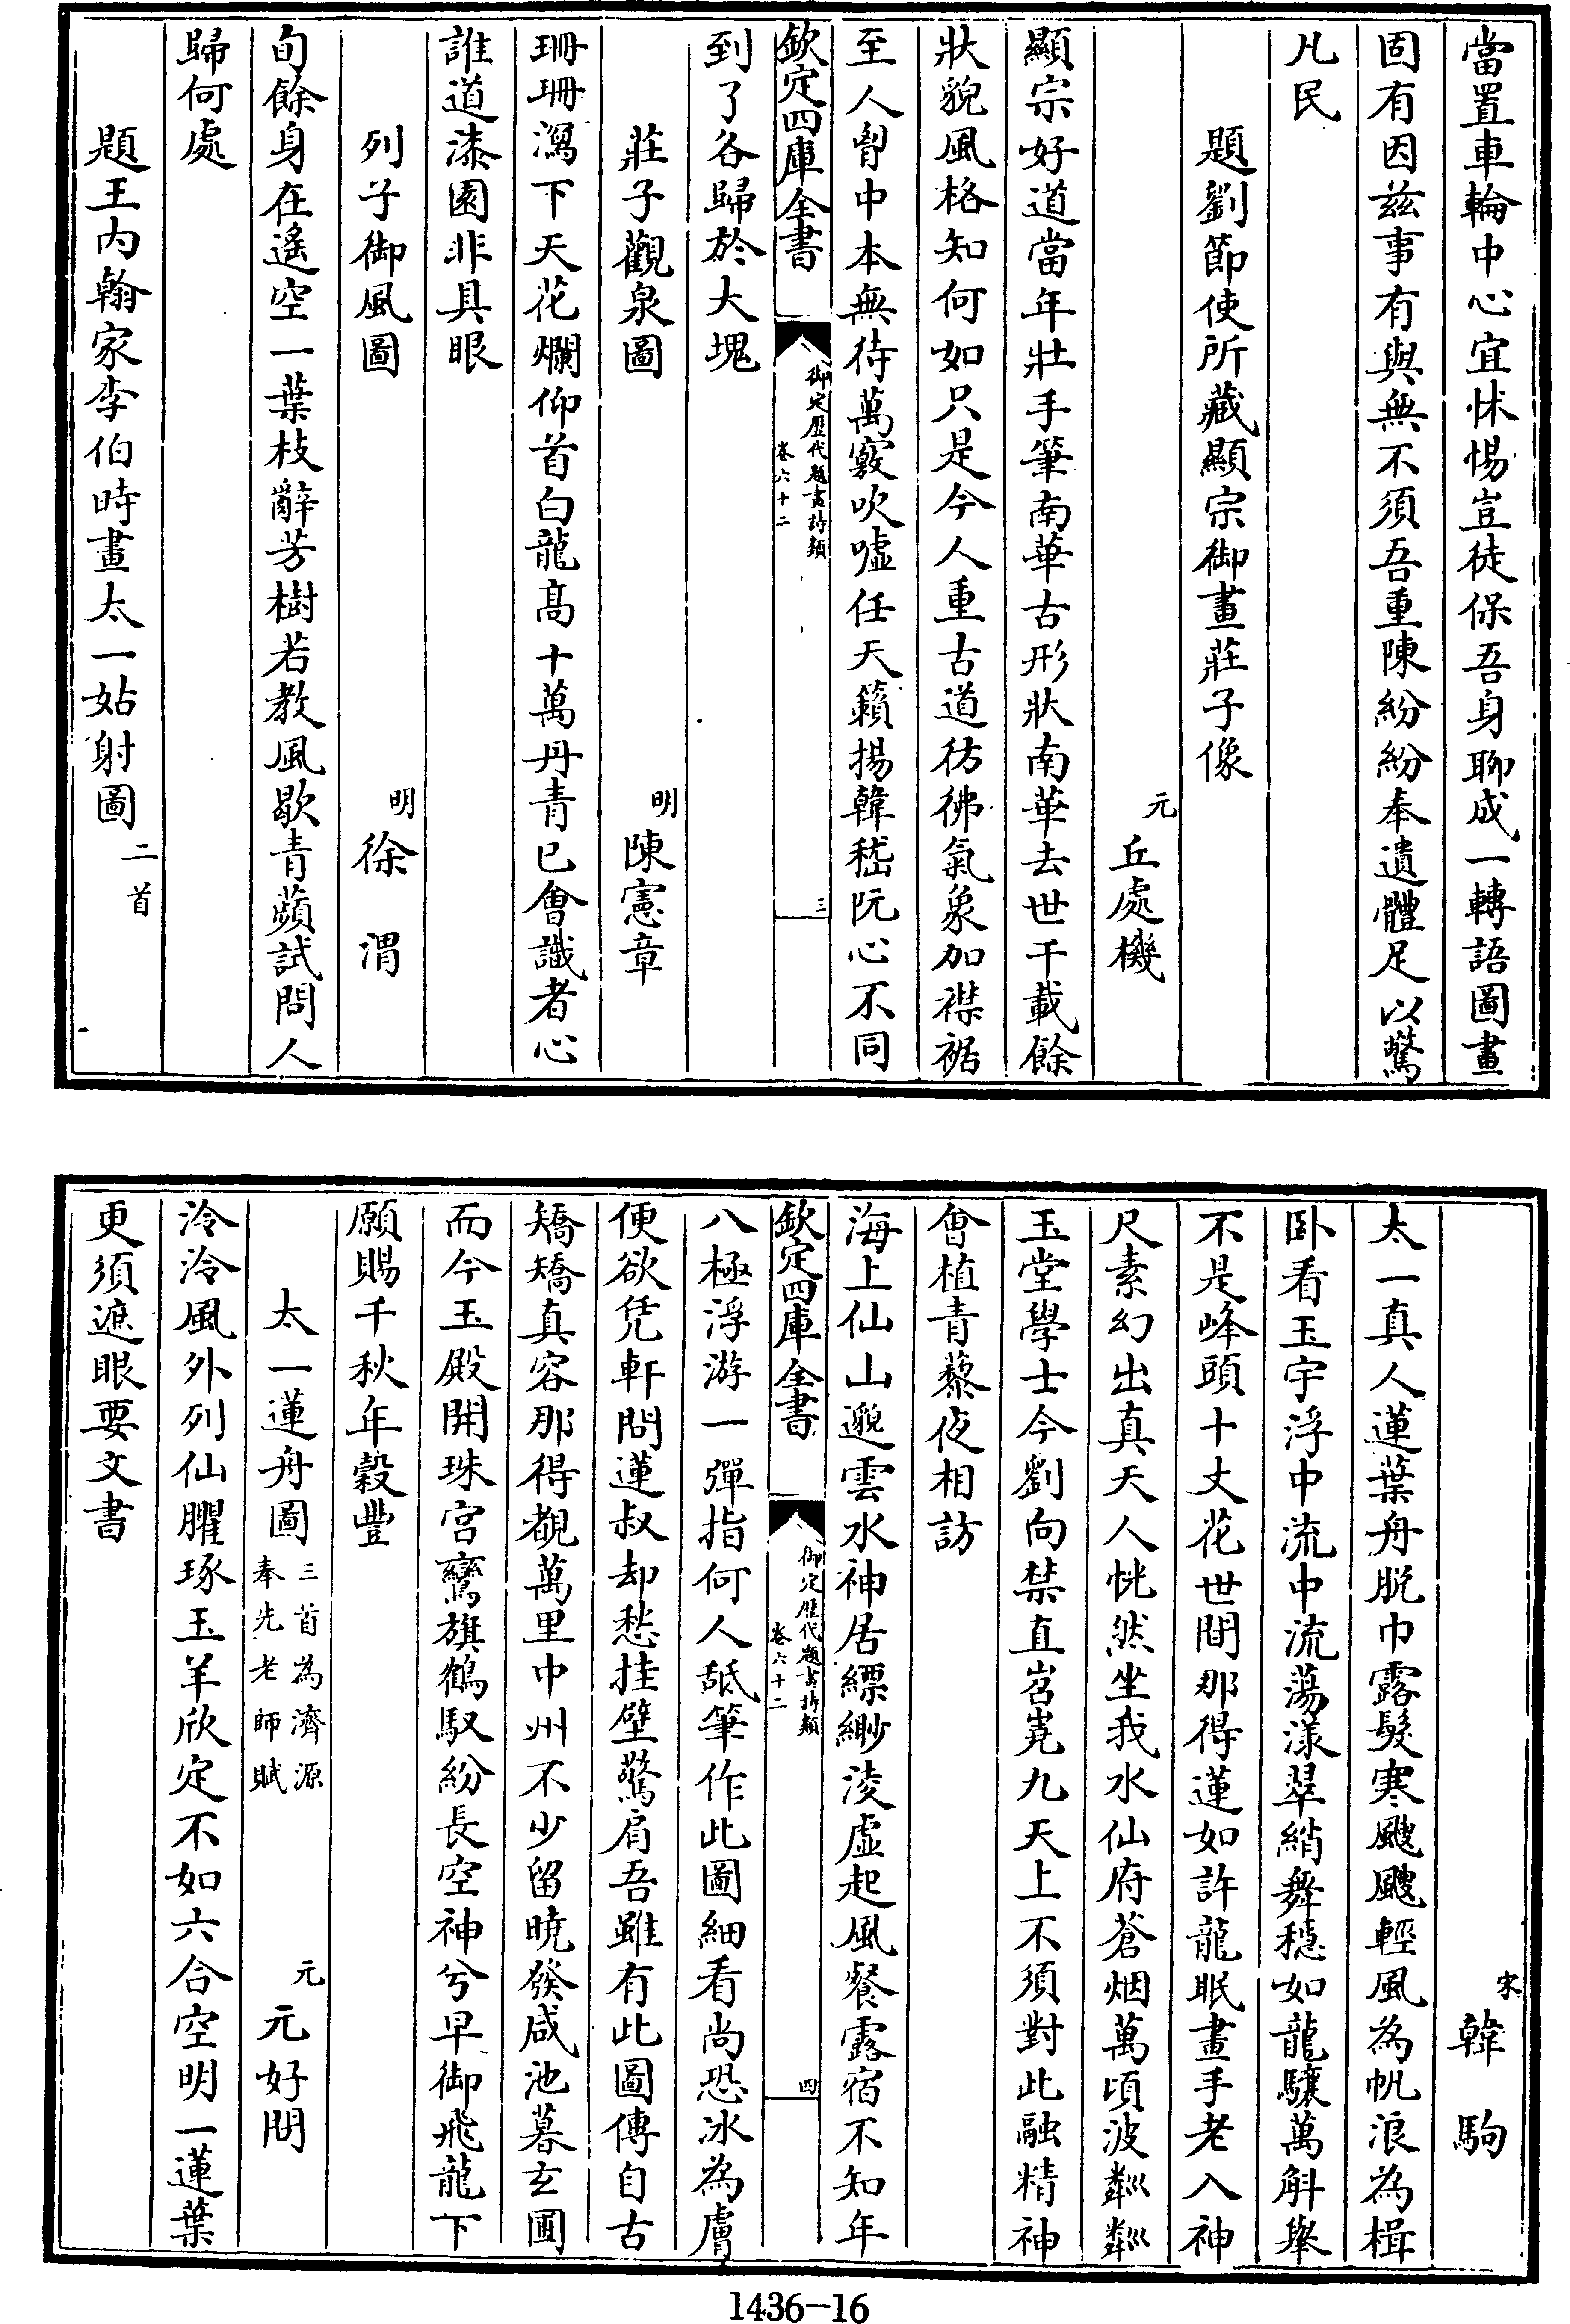 當置車輪中心宜怵惕豈徒保吾身聊成一轉語圖畫
固有因茲事有與無不須吾重陳紛紛奉遺體足以驚
凡民
題劉節使所藏顯宗御畫莊子像
元 丘處機
顯宗好道當年壯手筆南華古形狀南華去世千載餘
狀貌風格知何如只是今人重古道彷彿氣象加襟裾
至人胷中本無待萬竅吹噓任天籟揚韓嵇阮心不同
欽定四庫全書 御定歷代題畫詩類 卷六十二 三
到了各歸於大塊
莊子觀泉圖
明 陳憲章
珊珊瀉下天花爛仰首白龍高十萬丹青已會識者心
誰道漆園非具眼
列子御風圖
明 徐渭
旬餘身在遙空一葉枝辭芳樹若教風歇青蘋試問人
歸何處
題王内翰家李伯時畫太一姑射圖 二首
宋 韓駒
太一真人蓮葉舟脱巾露髮寒颼颼輕風為帆浪為楫
卧看玉宇浮中流中流蕩漾翠綃舞穩如龍驤萬斛舉
不是峰頭十丈花世間那得蓮如許龍眠畫手老入神
尺素幻出真天人恍然坐我水仙府蒼烟萬頃波粼粼
玉堂學士今劉向禁直岧嶤九天上不須對此融精神
會植青藜夜相訪
海上仙山邈雲水神居縹緲淩虛起風餐露宿不知年
欽定四庫全書 御定歷代題畫詩類 卷六十二 四
八極浮游一彈指何人舐筆作此圖細看尚恐冰為膚
便欲凭軒問蓮叔却愁挂壁驚肩吾雖有此圖傳自古
矯矯真容那得覩萬里中州不少留曉發咸池暮玄圃
而今玉殿開珠宫鸞旗鶴馭紛長空神兮早御飛龍下
願賜千秋年穀豐
太一蓮舟圖 三首為濟源奉先老師賦
元 元好問
泠泠風外列仙臞琢玉羊欣定不如六合空明一蓮葉
更須遮眼要文書
1436—16